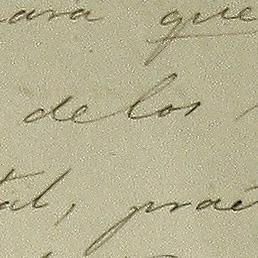 para que
de los
tal, prac